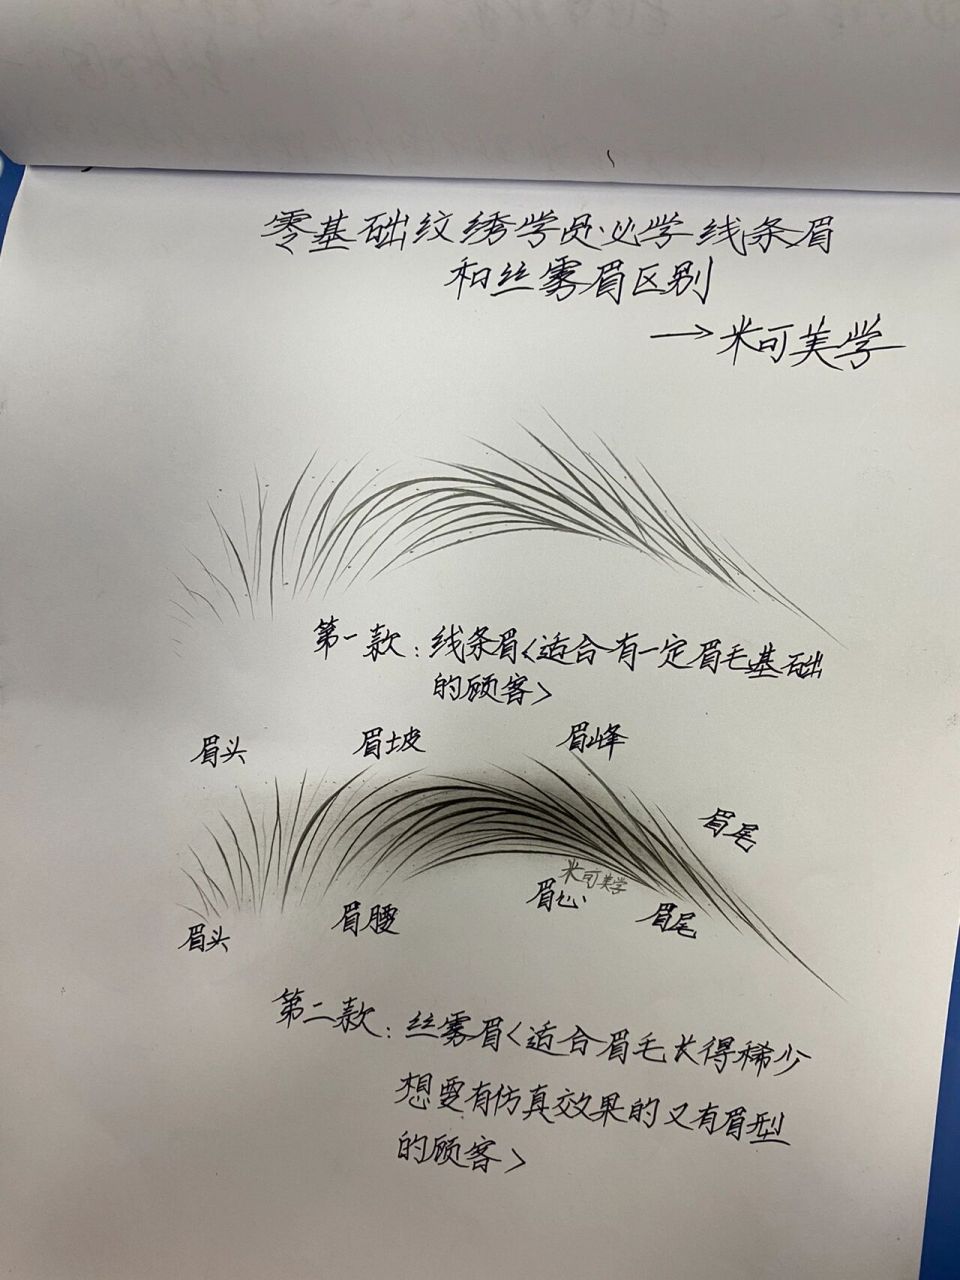 零基础纹绣学员必学线条眉
和丝雾眉区别
→米可美学
第一款:线条眉<适合有一定眉毛基础
的顾客>
眉头 眉坡 眉峰
眉尾
米可美学
眉心
眉头 眉腰 眉尾
第二款:丝雾眉<适合眉毛长得稀少
想要有仿真效果的又有眉型
的顾客>